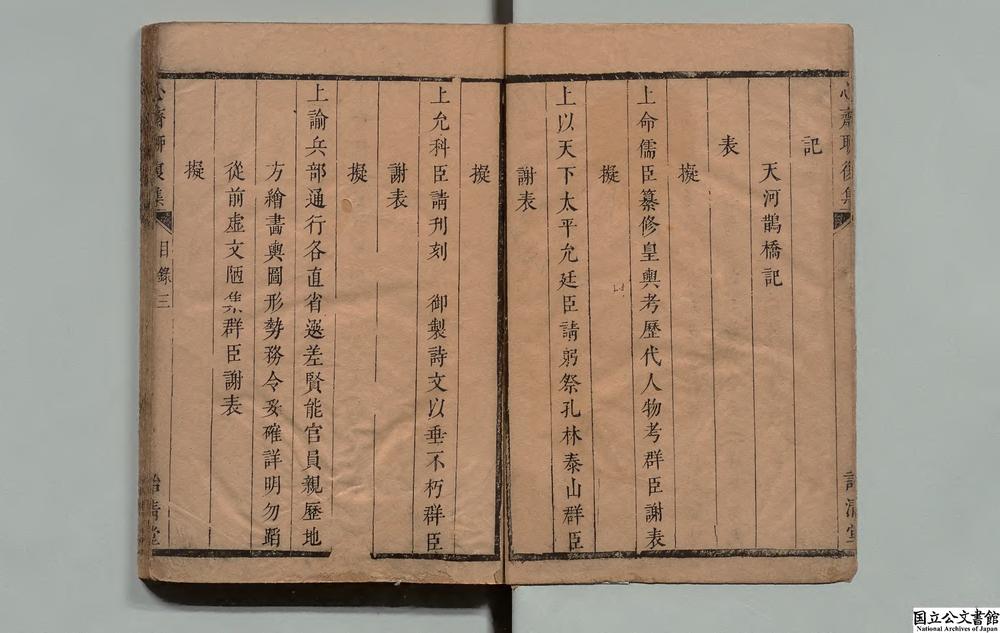 心齋聊復集
詒清堂
記
天河鵲橋記
表
擬
上命儒臣纂修皇輿考歷代人物考群臣謝表
擬
上以天下太平允廷臣請躬祭孔林泰山群臣
謝表
擬
上允科臣請刊刻 御製詩文以垂不朽群臣
謝表
擬
上諭兵部通行各直省遴差賢能官員親歷地
方繪畫輿圖形勢務令妥確詳明勿蹈
從前虛文陋集群臣謝表
擬
心齋聊復集
目錄三
詒清堂
国立公文書館
National Archives of Japan